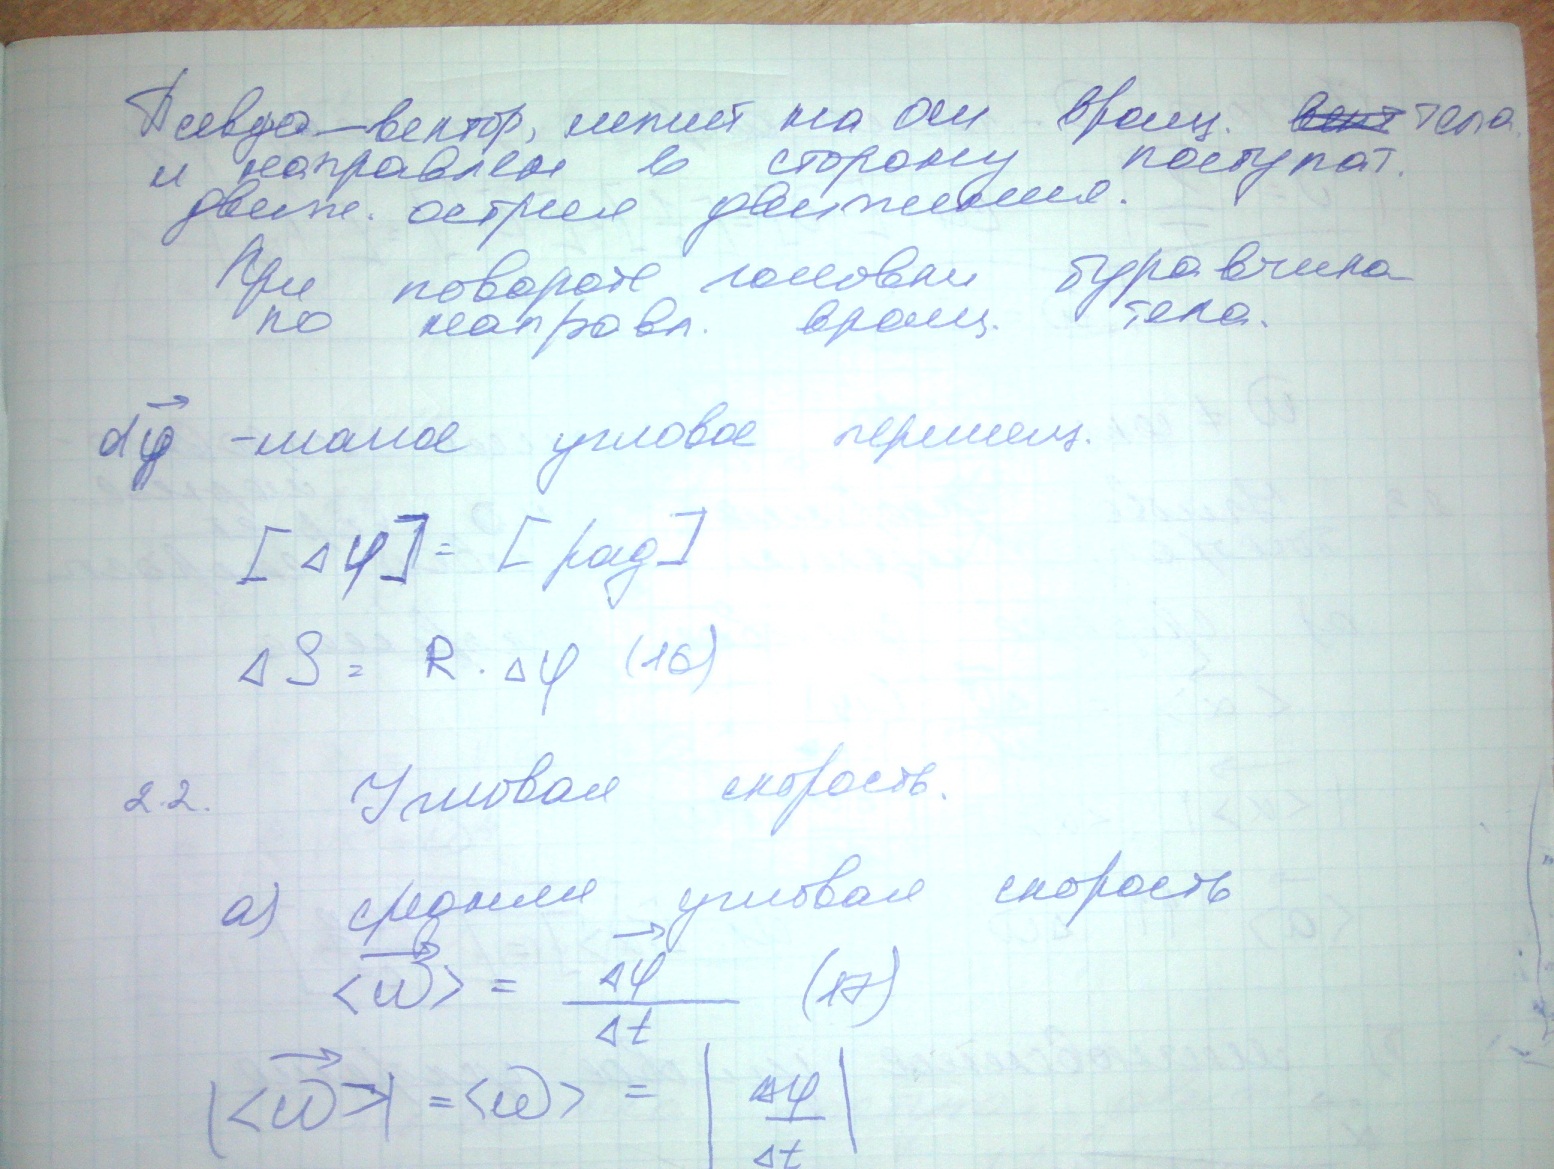 Псевдо-вектор, лежит на оси вращ. тела
и направлен в сторону поступат.
движ. острия движения.
При повороте головки буравчика
по направл. вращ. тела.
dφ⃗ - малое угловое перемещ.
[Δφ] = [рад]
ΔS = R · Δφ (16)
2.2. Угловая скорость.
а) средняя угловая скорость
<ω⃗> = Δφ⃗ / Δt (17)
|<ω⃗>| = <ω> = |Δφ / Δt|